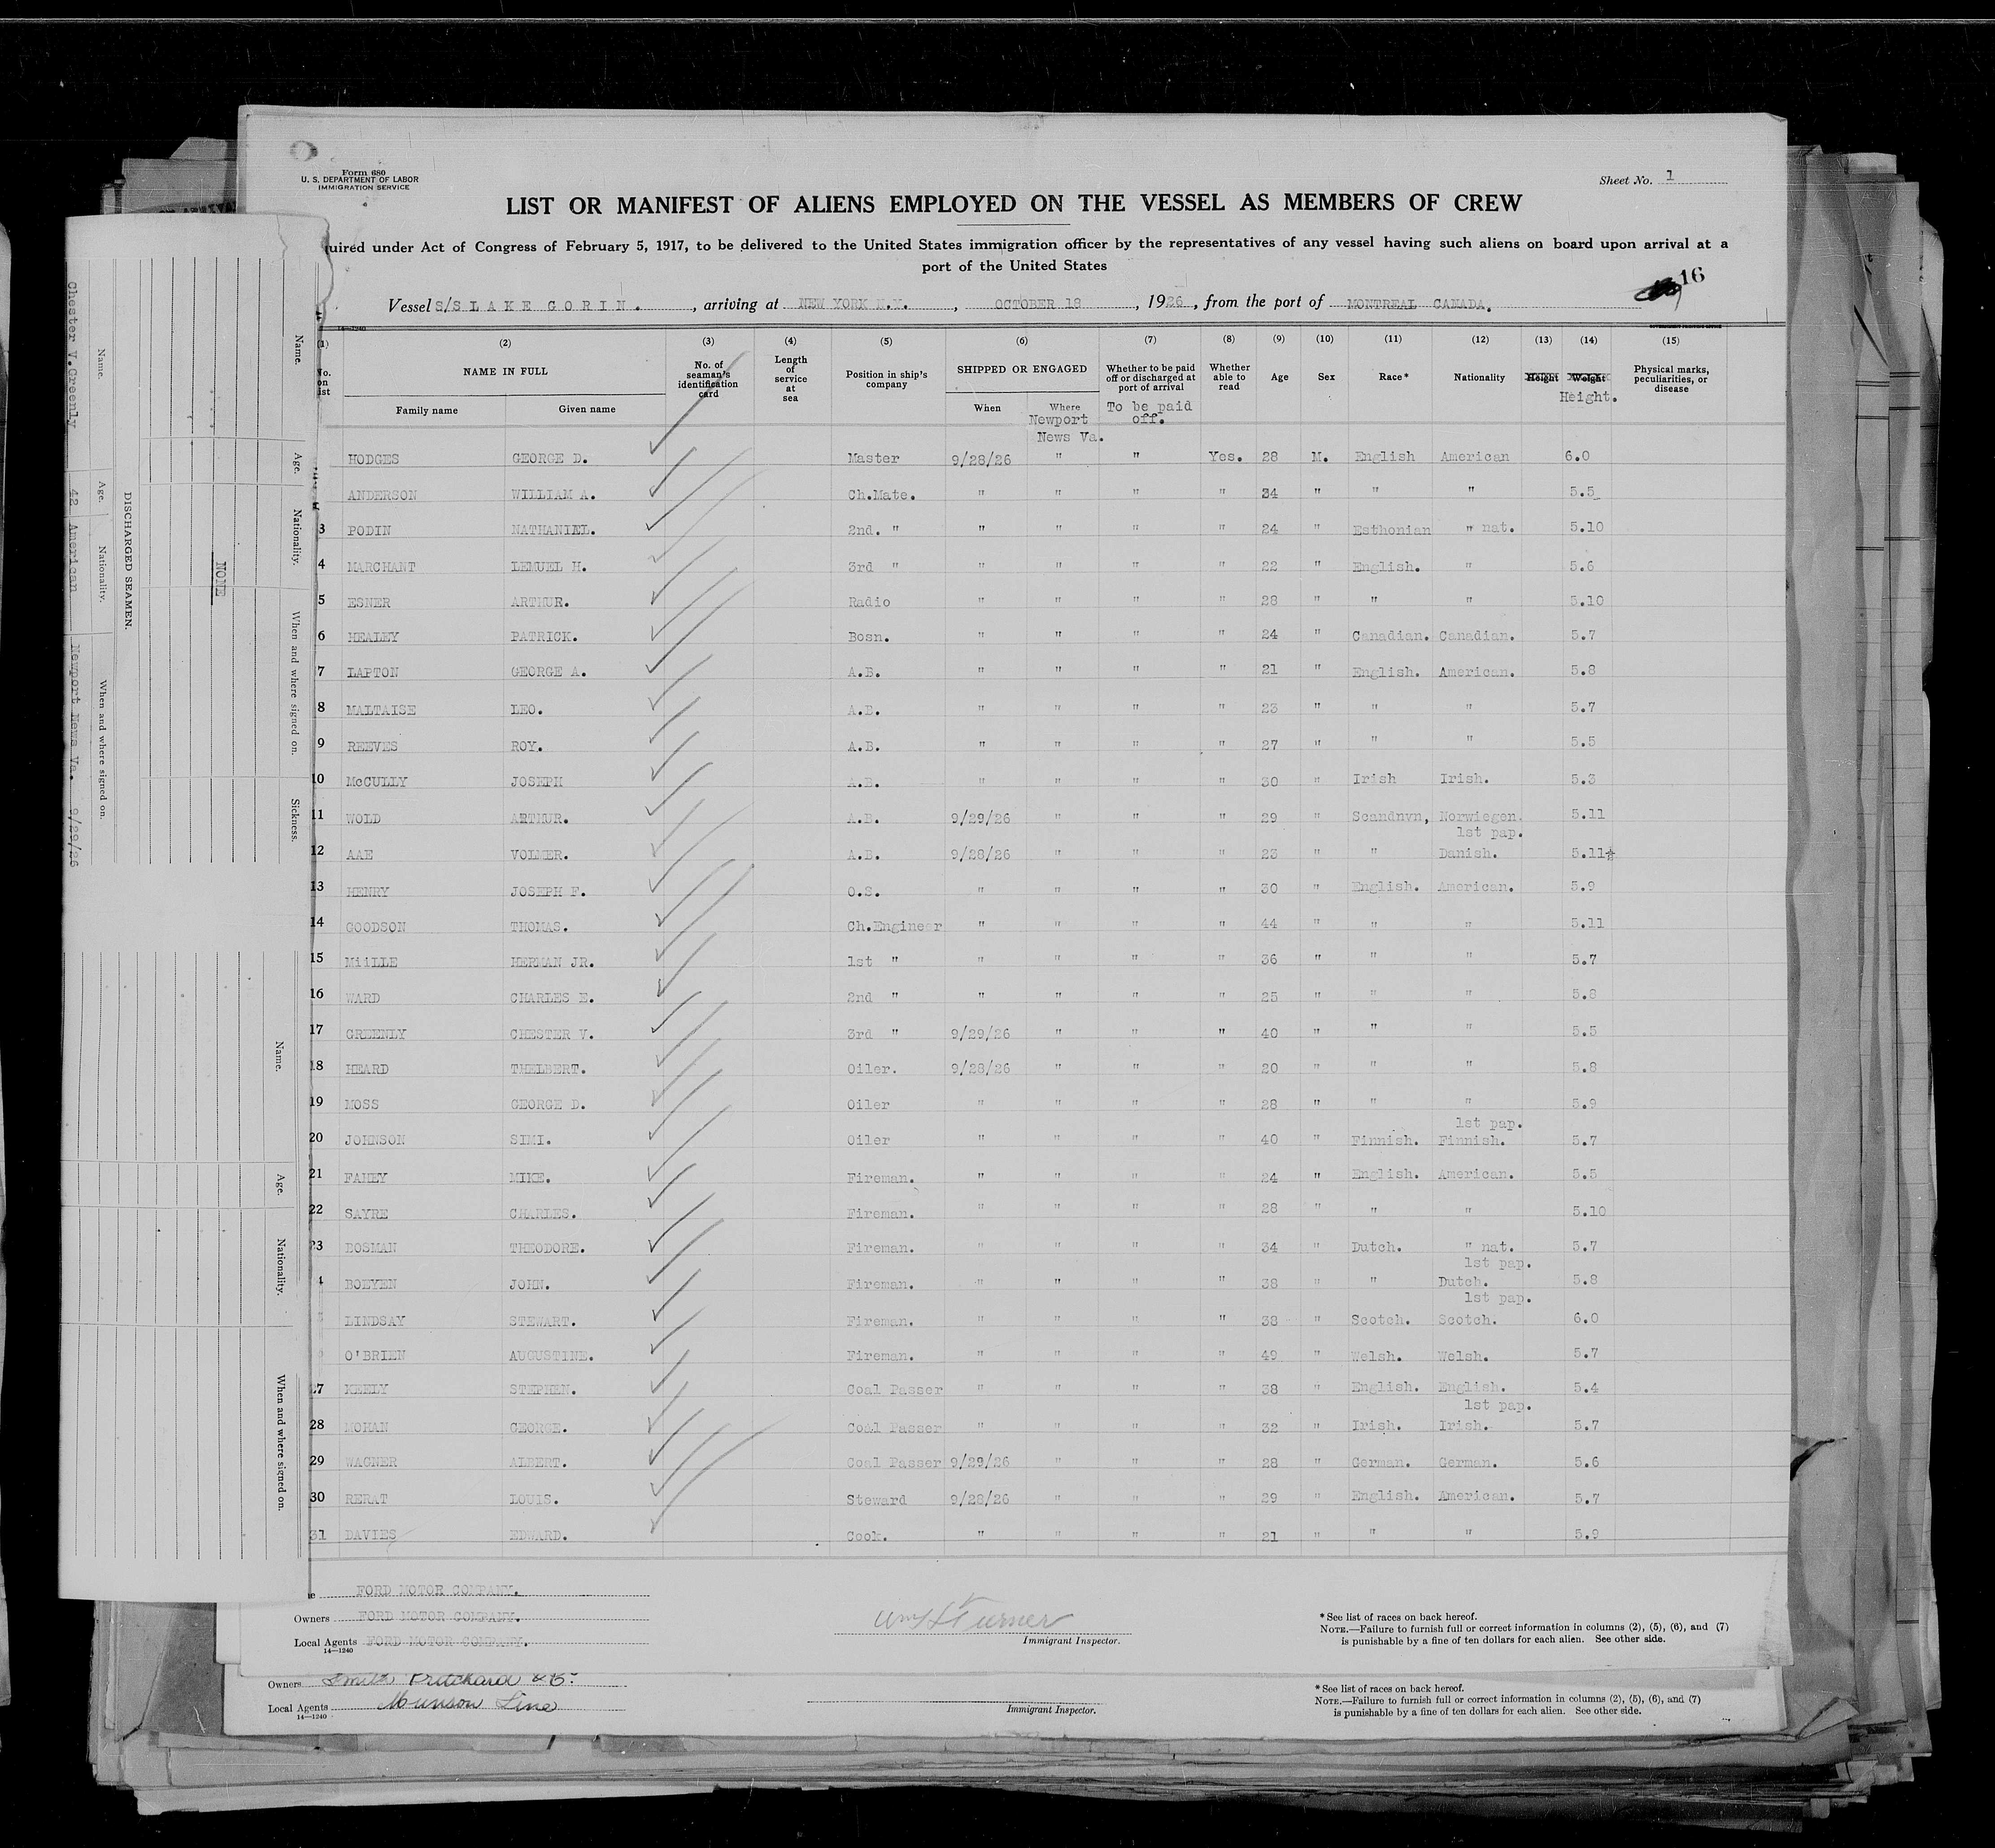 Form 680
U. S. DEPARTMENT OF LABOR
IMMIGRATION SERVICE
Sheet No. 1
LIST OR MANIFEST OF ALIENS EMPLOYED ON THE VESSEL AS MEMBERS OF CREW
uired under Act of Congress of February 5, 1917, to be delivered to the United States immigration officer by the representatives of any vessel having such aliens on board upon arrival at a
port of the United States
16
Vessel S/S LAKE GORIN. , arriving at NEW YORK N.Y. , OCTOBER 18 , 1926 , from the port of MONTREAL CANADA.
14—1240
(1) (2) (3) (4) (5) (6) (7) (8) (9) (10) (11) (12) (13) (14) (15)
No. on list NAME IN FULL Family name Given name No. of seaman's identification card Length of service at sea Position in ship's company SHIPPED OR ENGAGED When Where Whether to be paid off or discharged at port of arrival Whether able to read Age Sex Race* Nationality Height Weight Height. Physical marks, peculiarities, or disease
Newport News Va. To be paid off.
HODGES GEORGE D. Master 9/28/26 " " Yes. 28 M. English American 6.0
ANDERSON WILLIAM A. Ch.Mate. " " " " 34 " " " 5.5
3 PODIN NATHANIEL. 2nd. " " " " " 24 " Esthonian " nat. 5.10
4 MARCHANT LEMUEL H. 3rd " " " " " 22 " English. " 5.6
5 ESNER ARTHUR. Radio " " " " 28 " " " 5.10
6 HEALEY PATRICK. Bosn. " " " " 24 " Canadian. Canadian. 5.7
7 LAPTON GEORGE A. A.B. " " " " 21 " English. American. 5.8
8 MALTAISE LEO. A.B. " " " " 23 " " " 5.7
9 REEVES ROY. A.B. " " " " 27 " " " 5.5
10 McCULLY JOSEPH A.B. " " " " 30 " Irish Irish. 5.3
11 WOLD ARTHUR. A.B. 9/29/26 " " " 29 " Scandnvn, Norwiegen. 5.11
1st pap.
12 AAE VOLMER. A.B. 9/28/26 " " " 23 " " Danish. 5.11½
13 HENRY JOSEPH F. O.S. " " " " 30 " English. American. 5.9
14 GOODSON THOMAS. Ch.Engineer " " " " 44 " " " 5.11
15 MiiLLE HERMAN JR. 1st " " " " " 36 " " " 5.7
16 WARD CHARLES E. 2nd " " " " " 25 " " " 5.8
17 GREENLY CHESTER V. 3rd " 9/29/26 " " " 40 " " " 5.5
18 HEARD THELBERT. Oiler. 9/28/26 " " " 20 " " " 5.8
19 MOSS GEORGE D. Oiler " " " " 28 " " " 5.9
1st pap.
20 JOHNSON SIMI. Oiler " " " " 40 " Finnish. Finnish. 5.7
21 FAHEY MIKE. Fireman. " " " " 24 " English. American. 5.5
22 SAYRE CHARLES. Fireman. " " " " 28 " " " 5.10
23 BOSMAN THEODORE. Fireman. " " " " 34 " Dutch. " nat. 5.7
1st pap.
BOEYEN JOHN. Fireman. " " " " 38 " " Dutch. 5.8
1st pap.
LINDSAY STEWART. Fireman. " " " " 38 " Scotch. Scotch. 6.0
O'BRIEN AUGUSTINE. Fireman. " " " " 49 " Welsh. Welsh. 5.7
27 KEELY STEPHEN. Coal Passer " " " " 38 " English. English. 5.4
1st pap.
28 MOHAN GEORGE. Coal Passer " " " " 32 " Irish. Irish. 5.7
29 WAGNER ALBERT. Coal Passer 9/29/26 " " " 28 " German. German. 5.6
30 RERAT LOUIS. Steward 9/28/26 " " " 29 " English. American. 5.7
31 DAVIES EDWARD. Cook. " " " " 21 " " " 5.9
FORD MOTOR COMPANY.
Owners FORD MOTOR COMPANY.
Local Agents FORD MOTOR COMPANY.
14—1240
Wm H Turner
Immigrant Inspector.
*See list of races on back hereof.
NOTE.—Failure to furnish full or correct information in columns (2), (5), (6), and (7)
is punishable by a fine of ten dollars for each alien. See other side.
Owners Smith Pritchard & Co
Local Agents Munson Line
14—1240
Immigrant Inspector.
*See list of races on back hereof.
NOTE.—Failure to furnish full or correct information in columns (2), (5), (6), and (7)
is punishable by a fine of ten dollars for each alien. See other side.
Name. Age. Nationality. When and where signed on. Sickness.
NONE
DISCHARGED SEAMEN.
Name. Age. Nationality. When and where signed on.
Chester V.Greenly 42 American Newport News Va. 9/29/26
Name. Age. Nationality. When and where signed on.